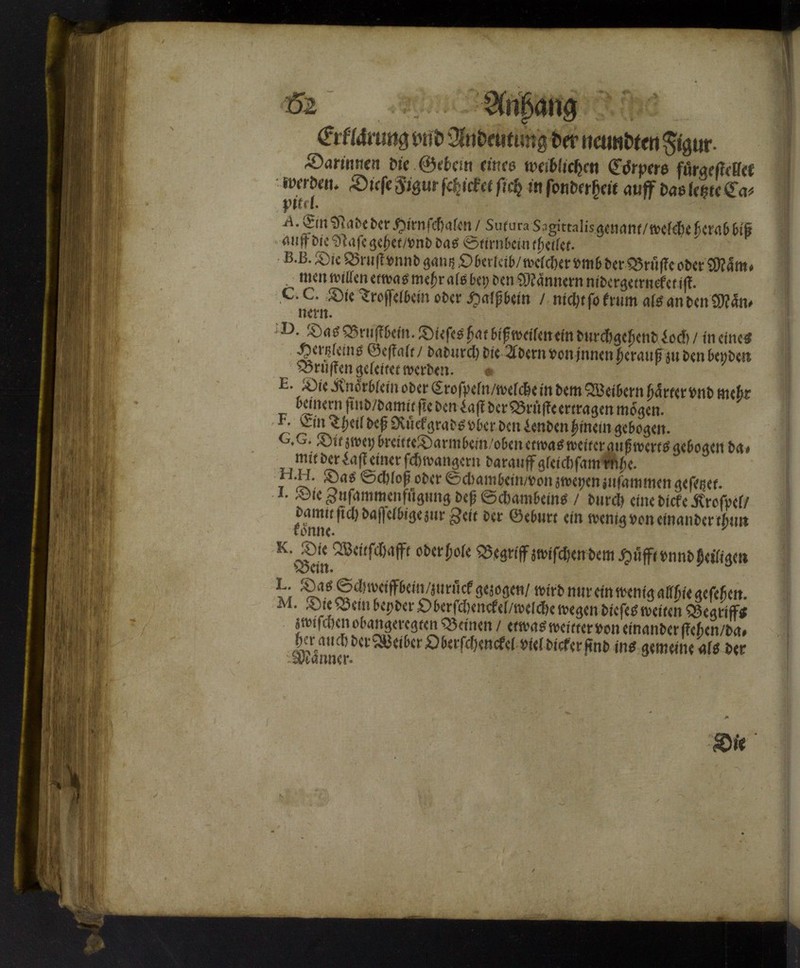 62 Anhang
Erklärung vnd Andeutung der neundten Figur.
Darinnen die Gebein eines weiblichen Cörpers fürgestellet
werden. Diese Figur schicket sich in sonderheit auff das letzte Ca⸗
pitel.
A. Ein Nade der Hirnschalen / Sutura Sagittalis genant/welche herab biß
auff die Nase gehet/vnd das Stirnbein theilet.
B.B. Die Brust vnnd gantz Oberleib/welcher vmb der Brüste oder Mäm⸗
men willen etwas mehr als bey den Männern nidergetrucket ist.
C. C. Die Trosselbein oder Halßbein / nicht so krum als an den Män⸗
nern.
D. Das Brustbein. Dieses hat bißweilen ein durchgehend Loch / in eines
Hertzleins Gestalt / dadurch die Adern von jnnen herauß zu den beyden
Brüsten geleitet werden.
E. Die Knörblein oder Crospeln/welche in dem Weibern härter vnd mehr
beinern sind/damit sie den Last der Brüste ertragen mögen.
F. Ein Theil deß Rückgrads vber den Lenden hinein gebogen.
G.G. Die zwey breitte Darmbein/oben etwas weiter außwerts gebogen da⸗
mit der Last einer schwangern darauff gleichsam ruhe.
H.H. Das Schloß oder Schambein/von zweyen zusammen gesetzet.
I. Die Zusammenfügung deß Schambeins / durch eine dicke Krospel/
damit sich dasselbige zur Zeit der Geburt ein wenig von einander thun
könne.
K. Die Weitschafft oder hole Begriff zwischen dem Hüfft vnnd heiligen
Bein.
L. Das Schweiffbein/zurück gezogen/ wird nur ein wenig allhie gesehen.
M. Die Bein bey der Oberschenckel/welche wegen dieses weiten Begriffs
zwischen obangeregten Beinen / etwas weitter von einander stehen/da⸗
her auch der Weiber Oberschenckel viel dicker sind ins gemeine als der
Männer.
Die